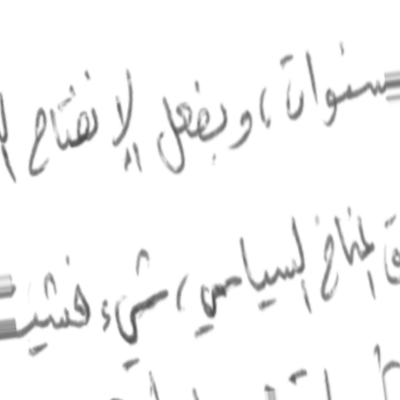 سنوات، وبفعل الإنفتاح
المناخ السياسي، شيء فشيئ